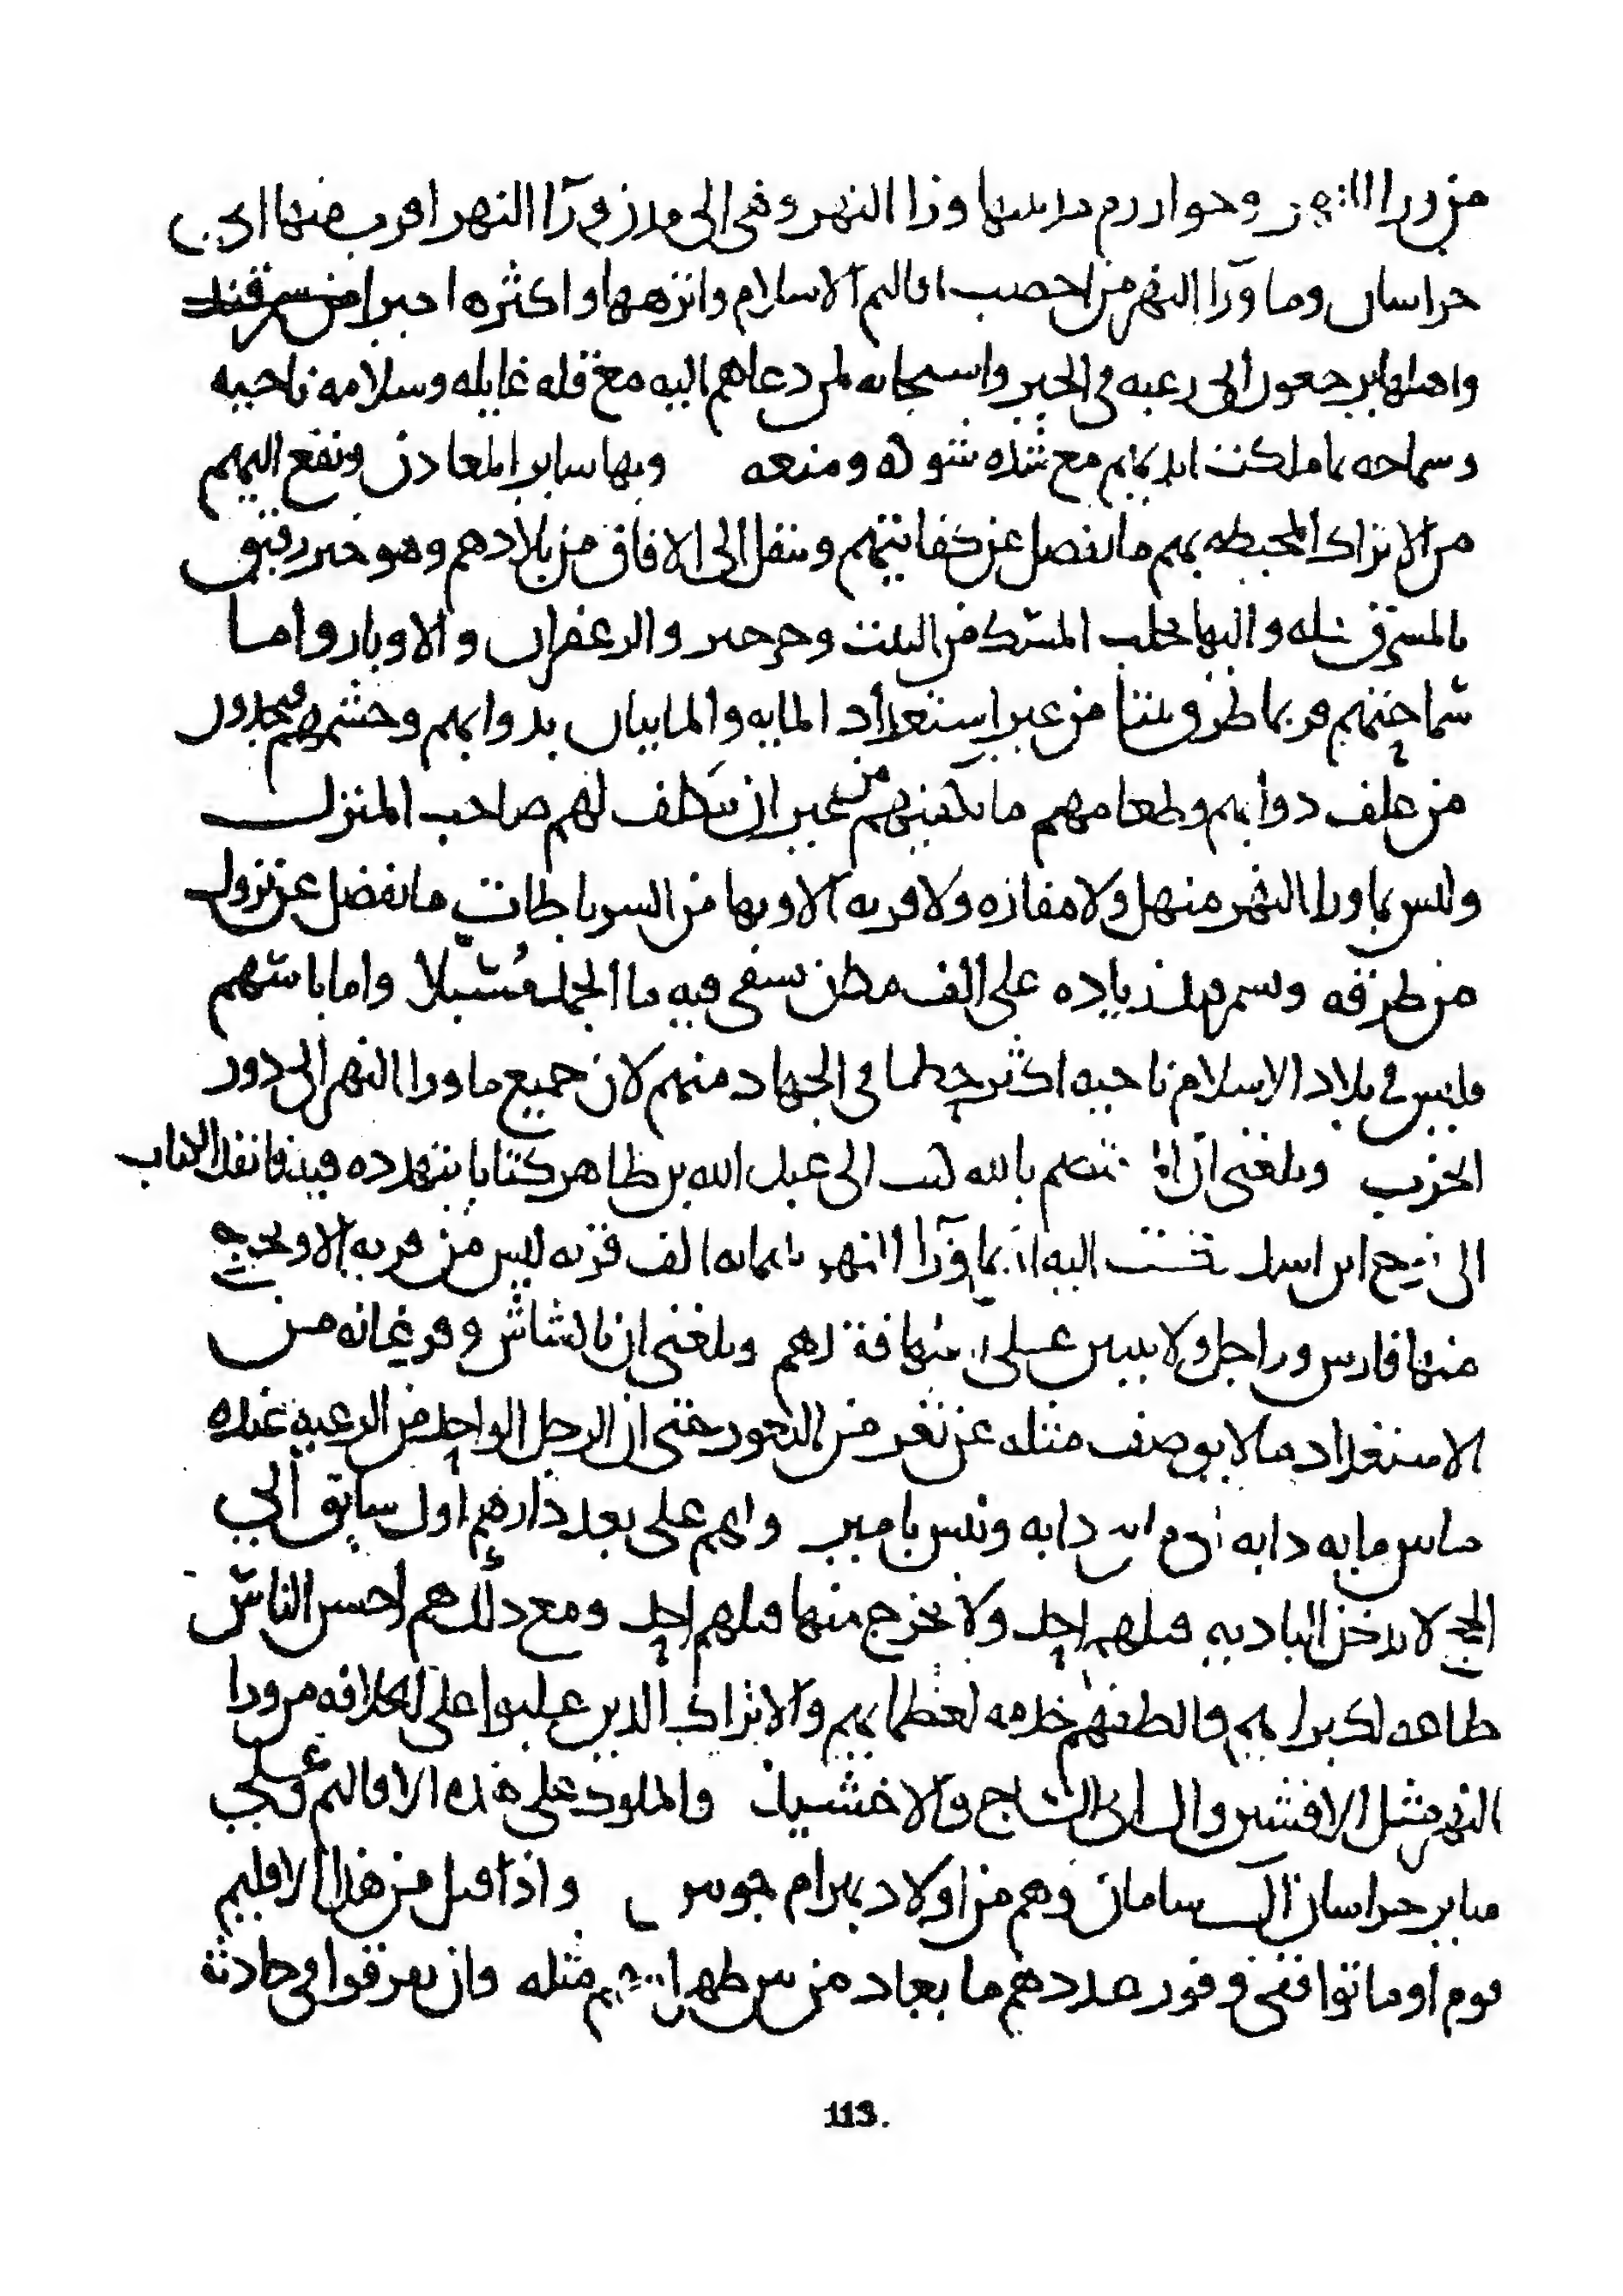 من ورا النهر وخوارزم مدينتها ورا النهر وهي الى مدن ورآ النهر اقرب منها الى
خراسان وما ورآ النهر من اخصب اقاليم الاسلام وانزهها واكثرها خيرا
واهلها يرجعون الى رغبه في الخير واستجابه لمن دعاهم اليه مع قله غايله وسلامه ناحيه
وسماحه بما ملكت ايديهم مع شده شوكه ومنعه وبها ساير المعادن ويقع اليهم
من الاتراك المحيطه بهم ما يفضل عن كفايتهم وينقل الى الافاق من بلادهم وهو خير رقيق
بالمشرق كله واليها يجلب المسك من التبت وخرخير والزعفران والاوبار واما
سماحتهم فربما طرق بيتا من غير استعداد المايه والمايتان بدوابهم وحشمهم فيجدون
من علف دوابهم وطعامهم ما يكفيهم من غير ان يتكلف لهم صاحب المنزل
وليس بما ورا النهر منهل ولا مفازه ولا قريه الا وبها من الرباطات ما يفضل عن نزول
من طرقه وبسمرقند زياده على الف مكان يسقى فيه ما الجمد مسبلا واما باسهم
فليس في بلاد الاسلام ناحيه اكثر حظا في الجهاد منهم لان جميع ما ورا النهر الى دور
الحرب وبلغني ان المعتصم بالله كتب الى عبد الله بن طاهر كتابا يتهدده فيه فانفذ الكتاب
الى نوح ابن اسد فكتب اليه ان بما ورآ النهر ثلثمايه الف قريه ليس من قريه الا ويخرج
منها فارس وراجل ولا يبين على اهلها فقدهم وبلغني ان بالشاش وفرغانه من
الاستعداد ما لا يوصف مثله عن ثغر من الثغور حتى ان الرجل الواحد من الرعيه عنده
ما بين مايه دابه الى دابه وليس بامير وانهم على بعد دارهم اول سابق الى
الحج لا يدخل الباديه قبلهم احد ولا يخرج منها قبلهم احد ومع ذلك هم احسن الناس
طاعه لكبرايهم والطفهم خدمه لعظمايهم والاتراك الذين غلبوا على الخلافه من ورا
النهر مثل الافشين وال ابى الساج والاخشيد والملوك على هذه الاقاليم وعلى
ساير خراسان آل سامان وهم من اولاد بهرام جوبين واذا قتل من هذا الاقليم
قوم او ماتوا ففي وفور عددهم ما يعاد من بين ظهرانيهم مثله وان تفرقوا في حادثة
113.